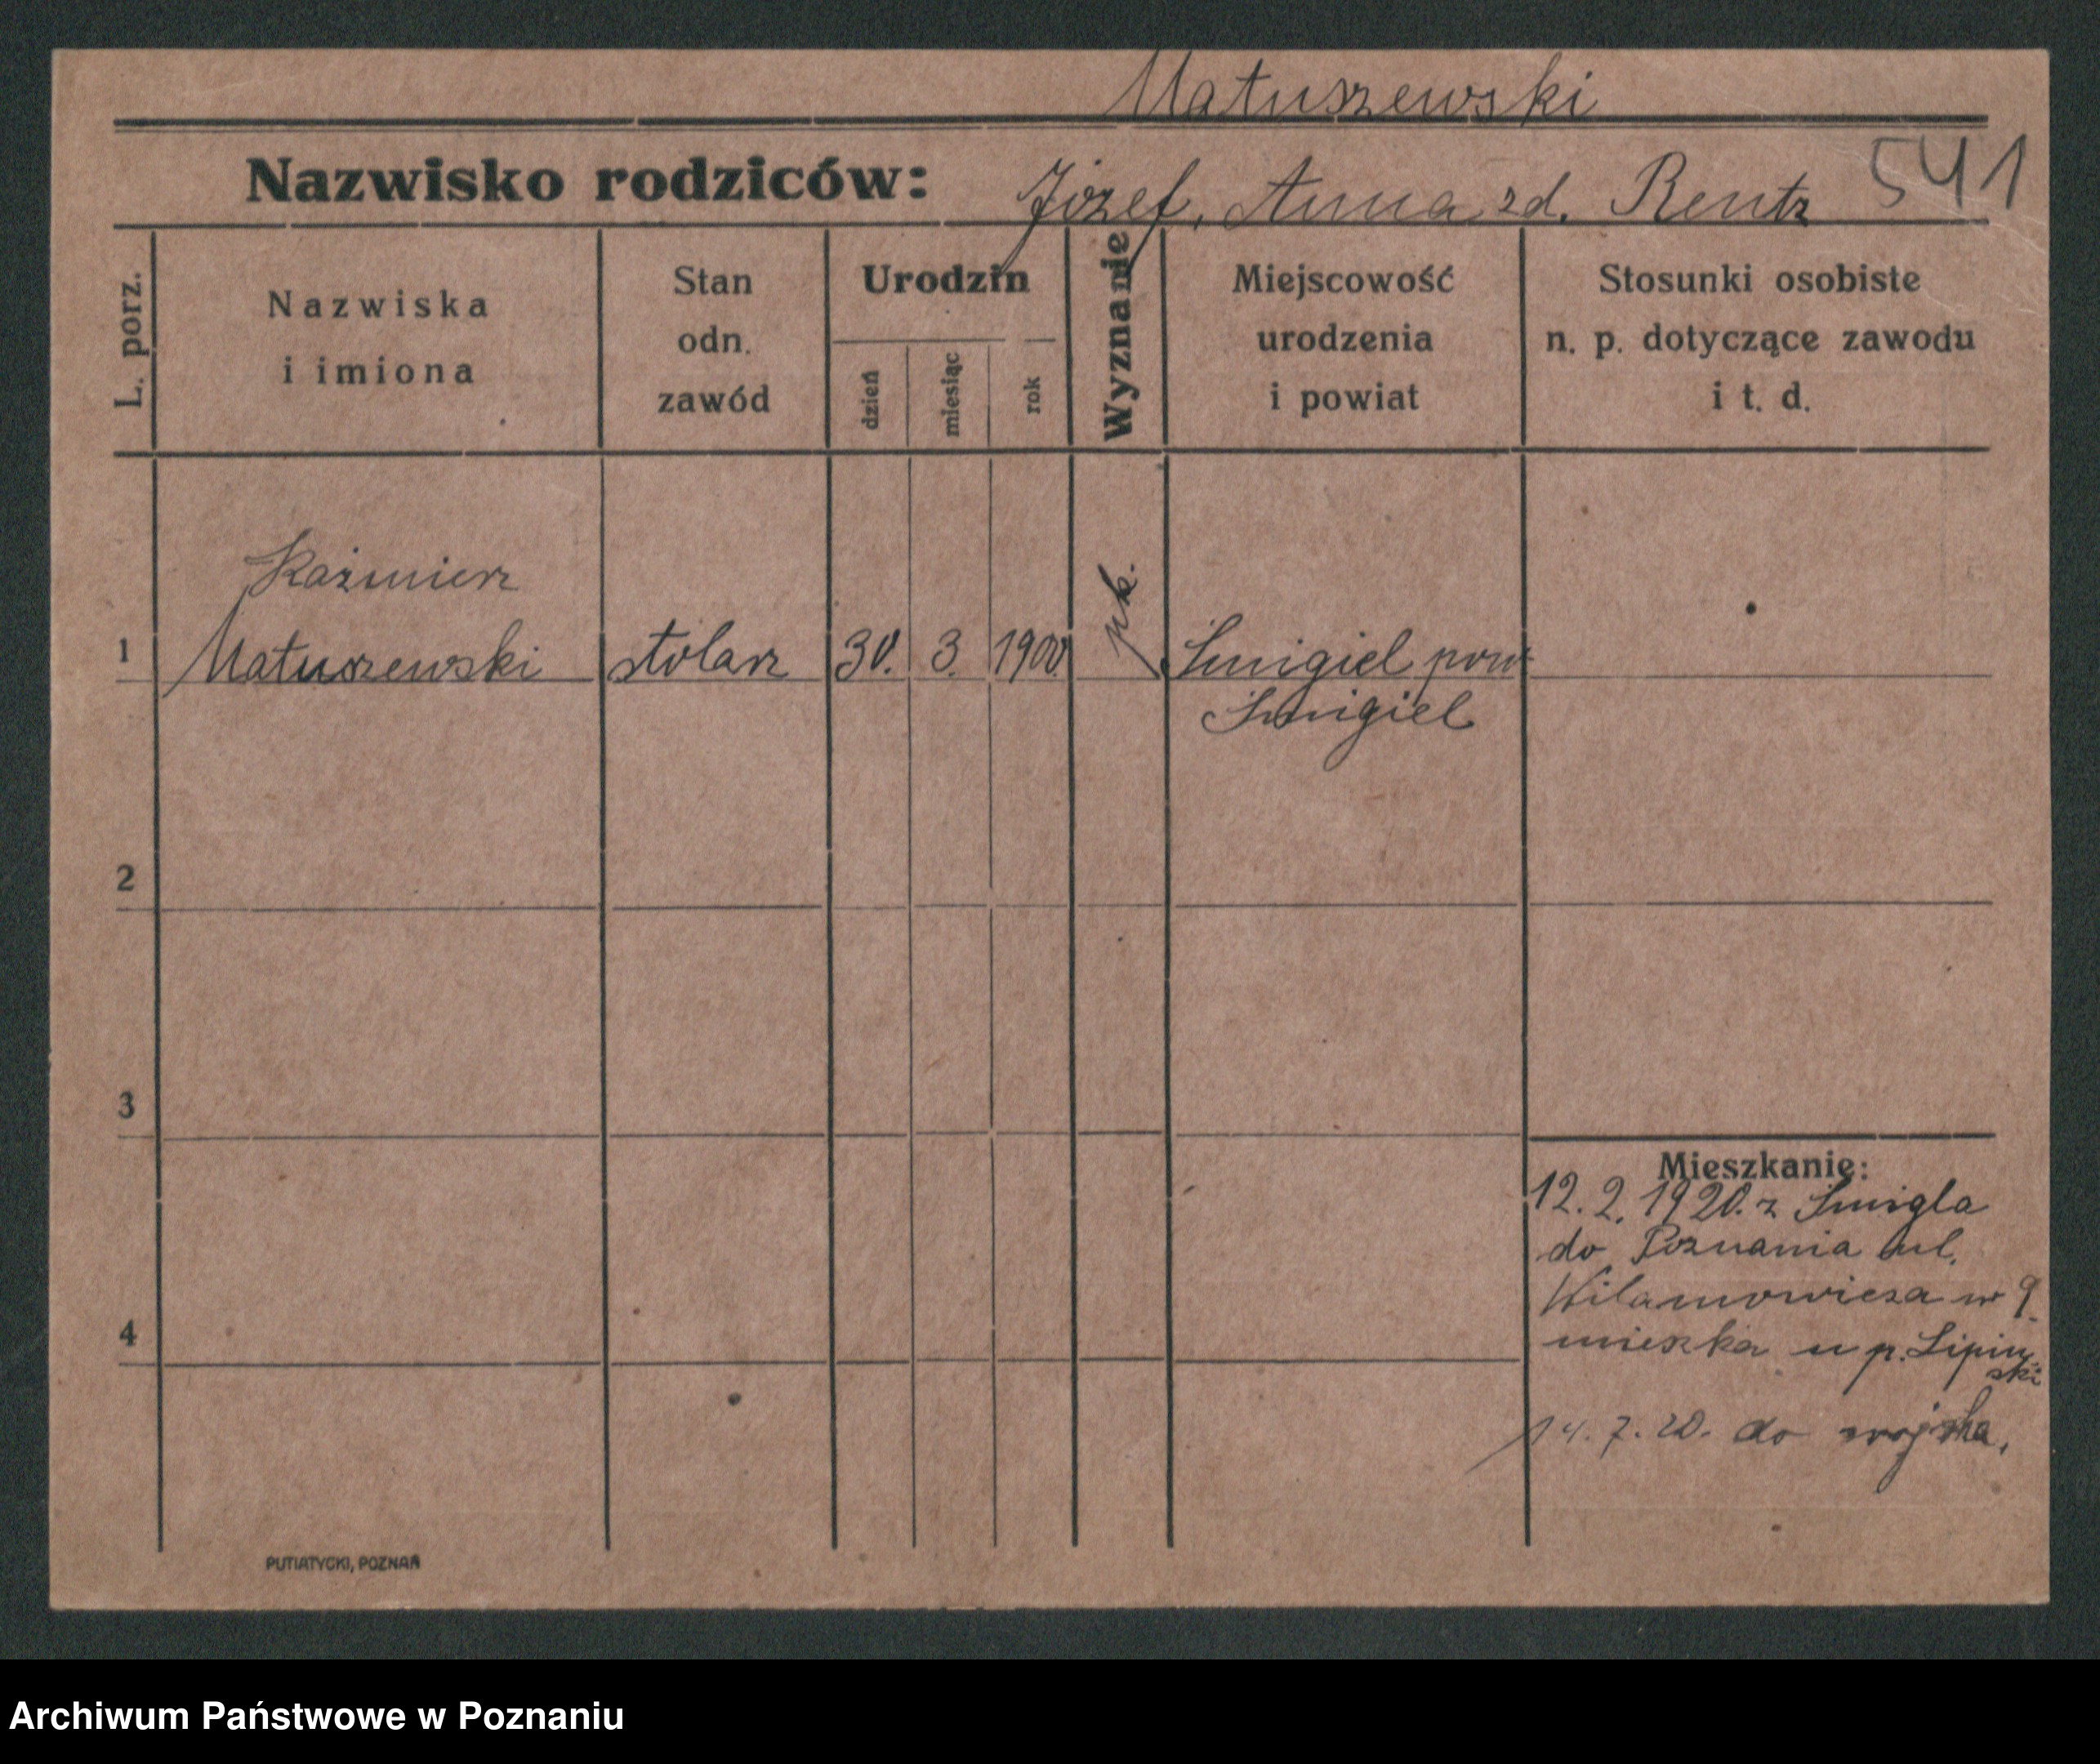 Matuszewski
Nazwisko rodziców: Józef, Anna zd. Rentz 541
L. porz.
Nazwiska
i imiona
Stan
odn.
zawód
Urodzin
dzień
miesiąc
rok
Wyznanie
Miejscowość
urodzenia
i powiat
Stosunki osobiste
n. p. dotyczące zawodu
i t. d.
Kaźmierz
1 Matuszewski stolarz 30. 3. 1900. Śmigiel pow
Śmigiel
2
3
4
Mieszkanie:
12. 2. 1920. z Śmigla
do Poznania ul.
Wilamowicza nr 9.
mieszka u p. Lipin
ski
14. 7. 20. do wojska.
PUTIATYCKI, POZNAŃ
Archiwum Państwowe w Poznaniu